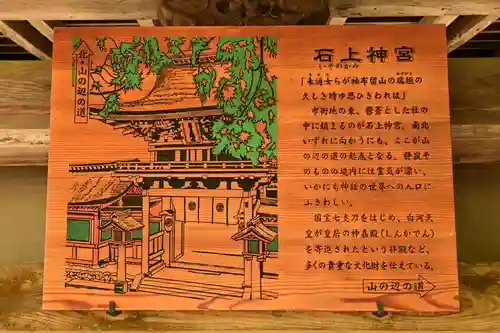 北・山の辺の道
石上神宮
いそのかみ
「未通女らが袖布留山の瑞垣の
久しき時ゆ思ひきわれは」
市街地の東、鬱蒼とした杜の
中に鎮まるのが石上神宮。南北
いずれに向かうにも、ここが山
の辺の道の起点となる。静寂そ
のものの境内には霊気が漂い、
いかにも神話の世界への入口に
ふさわしい。
国宝七支刀をはじめ、白河天
皇が皇居の神嘉殿(しんかでん)
を寄進されたという拝殿など、
多くの貴重な文化財を伝えている。
山の辺の道